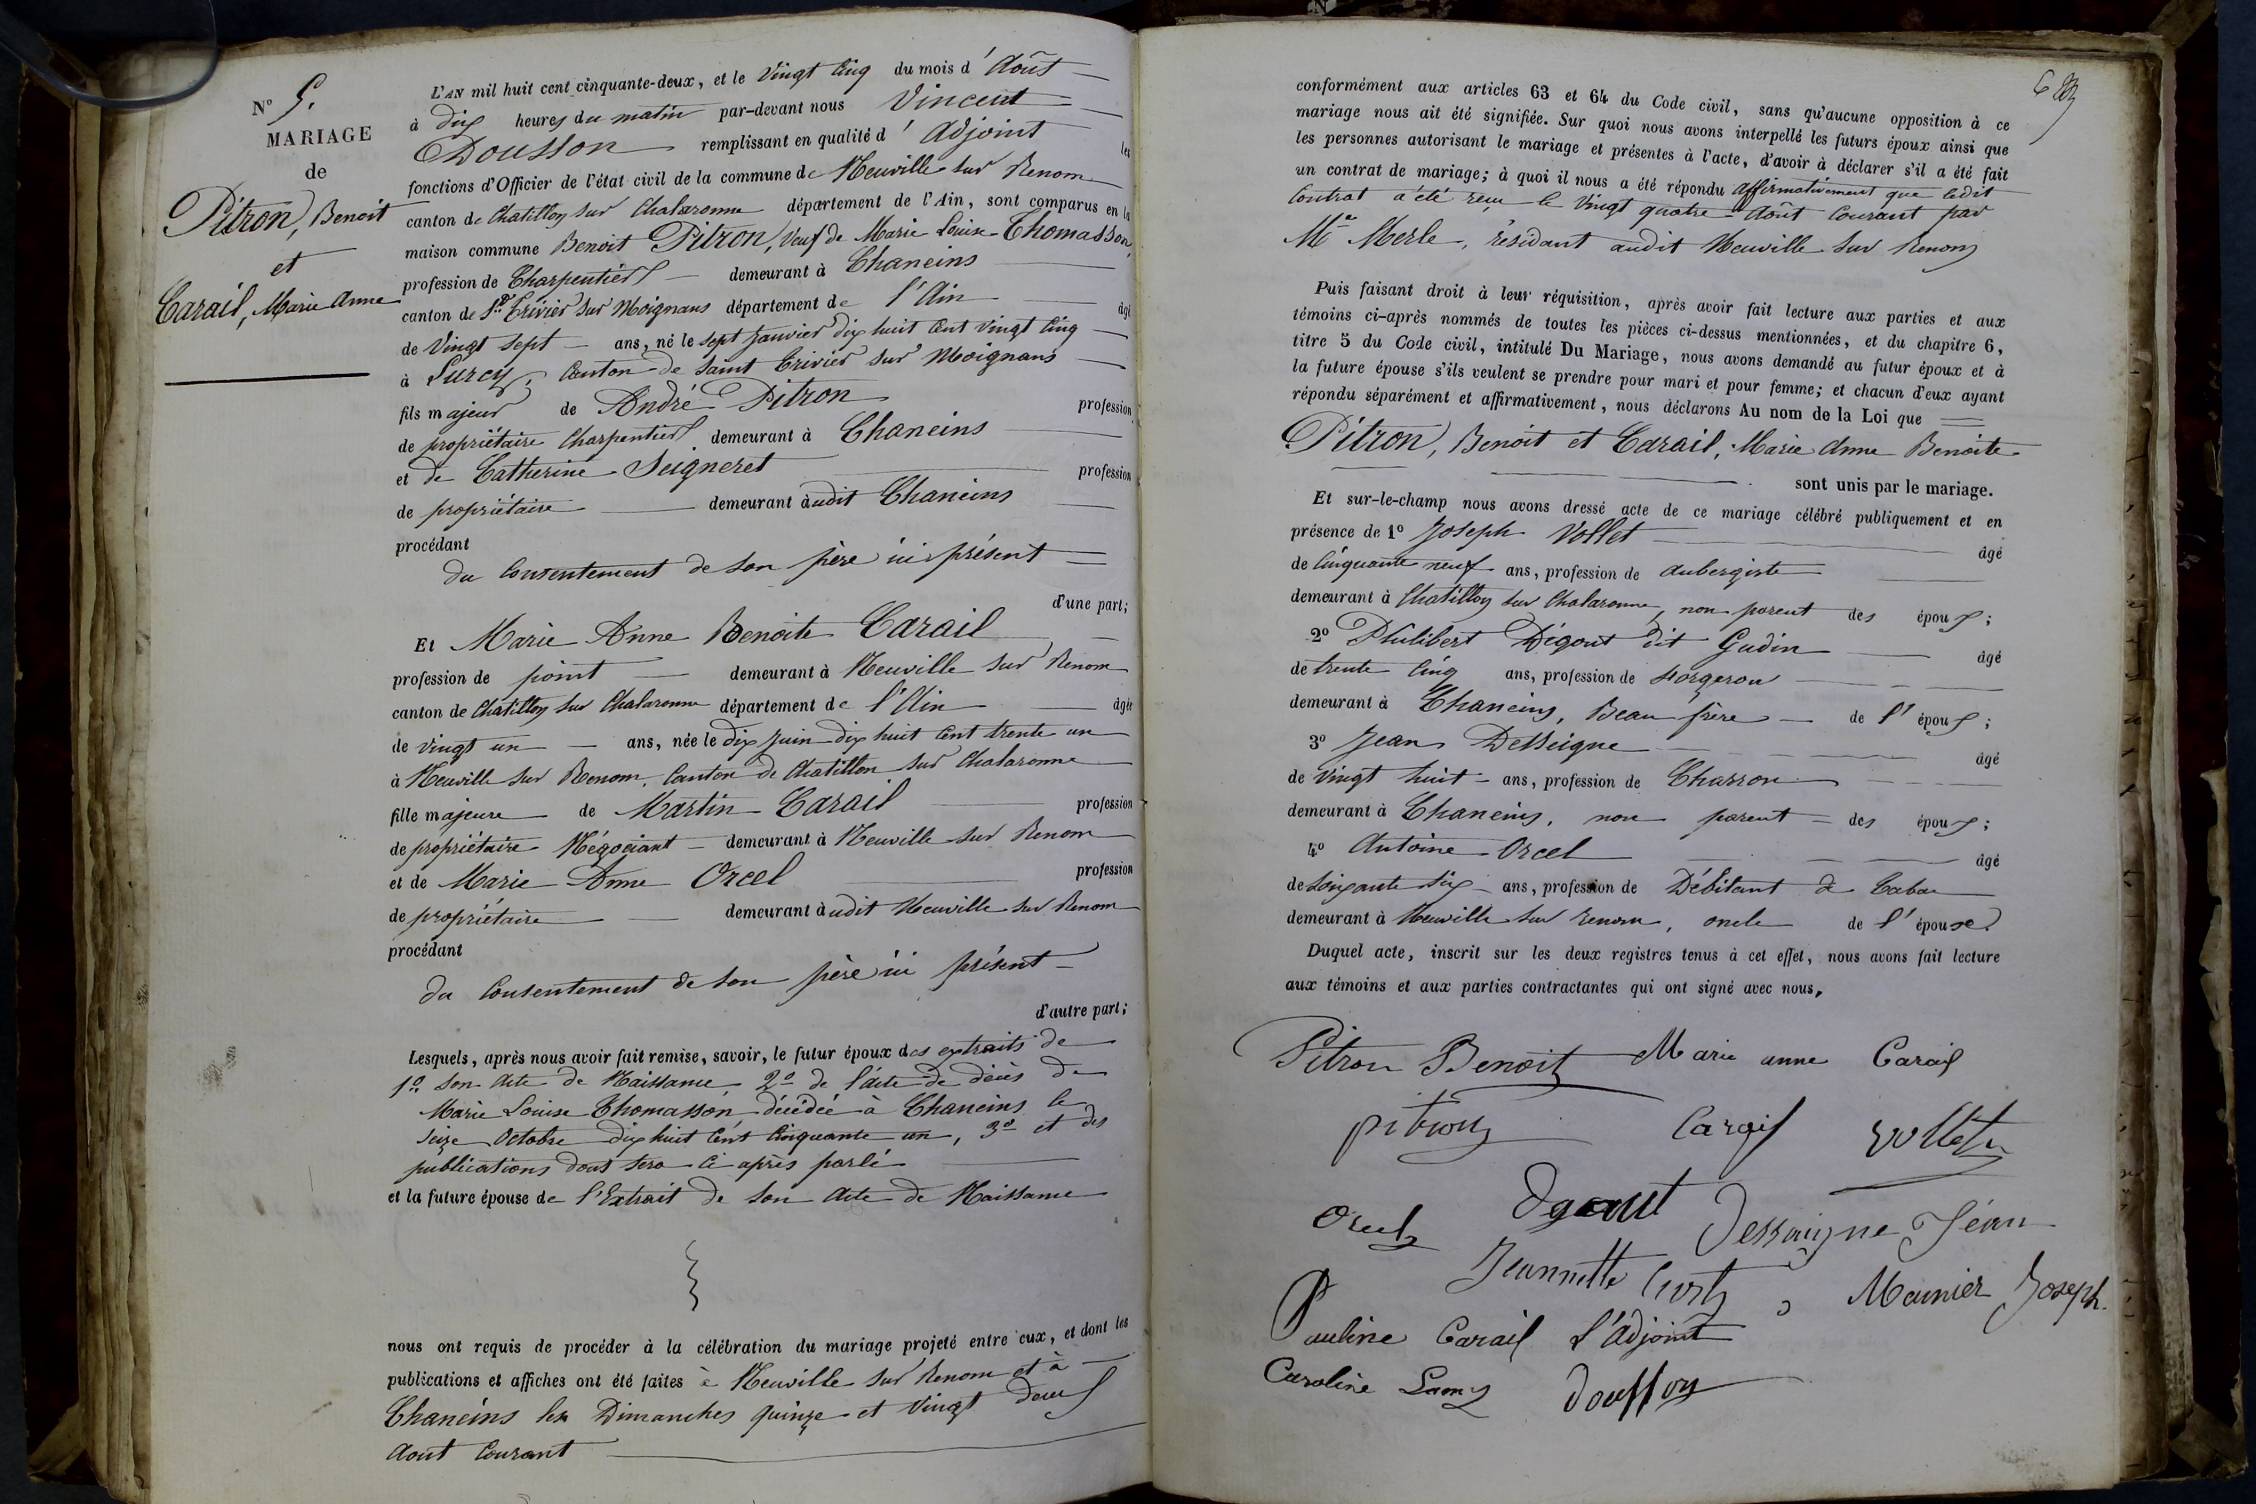 N° 5.
MARIAGE
de
Pitron, Benoit
et
Carail, Marie Anne
L'AN mil huit cent cinquante-deux, et le Vingt Cinq du mois d' Août
à dix heures du matin par-devant nous Vincent
Dousson remplissant en qualité d' Adjoint les
fonctions d'Officier de l'état civil de la commune de Neuville sur Renom
canton de Chatillon sur Chalaronne département de l'Ain, sont comparus en la
maison commune Benoit Pitron, Veuf de Marie Louise Thomasson,
profession de Charpentier demeurant à Chaneins
canton de St. Trivier sur Moignans département de l'Ain âgé
de Vingt sept ans, né le sept Janvier dix huit Cent vingt Cinq
à Lurcy, Canton de Saint Trivier sur Moignans
fils majeur de André Pitron profession
de propriétaire Charpentier demeurant à Chaneins
et de Catherine Seigneret profession
de propriétaire demeurant àudit Chaneins
procédant
du Consentement de son père ici présent
d'une part;
Et Marie Anne Benoite Carail
profession de point demeurant à Neuville sur Renom
canton de Chatillon sur Chalaronne département de l'Ain âgée
de vingt un ans, née le dix Juin dix huit Cent trente un
à Neuville sur Renom, Canton de Chatillon sur Chalaronne
fille majeure de Martin Carail profession
de propriétaire Négociant demeurant à Neuville sur Renom
et de Marie Anne Orcel profession
de propriétaire demeurant àudit Neuville sur Renom
procédant
du Consentement de son père ici présent
d'autre part;
Lesquels, après nous avoir fait remise, savoir, le futur époux des extraits de
1° son acte de Naissance 2° de l'acte de décès de
Marie Louise Thomasson décédée à Chaneins le
seize Octobre dix huit Cent Cinquante un, 3° et des
publications dont sera Ci après parlé
et la future épouse de l'Extrait de son Acte de Naissance
nous ont requis de procéder à la célébration du mariage projeté entre eux, et dont les
publications et affiches ont été faites à Neuville sur Renom et à
Chaneins les Dimanches quinze et Vingt deux
Aout Courant
conformément aux articles 63 et 64 du Code civil, sans qu'aucune opposition à ce
mariage nous ait été signifiée. Sur quoi nous avons interpellé les futurs époux ainsi que
les personnes autorisant le mariage et présentes à l'acte, d'avoir à déclarer s'il a été fait
un contrat de mariage; à quoi il nous a été répondu affirmativement que ledit
Contrat a été reçu le Vingt quatre Août Courant par
Me Merle, résidant audit Neuville sur Renom
Puis faisant droit à leur réquisition, après avoir fait lecture aux parties et aux
témoins ci-après nommés de toutes les pièces ci-dessus mentionnées, et du chapitre 6,
titre 5 du Code civil, intitulé Du Mariage, nous avons demandé au futur époux et à
la future épouse s'ils veulent se prendre pour mari et pour femme; et chacun d'eux ayant
répondu séparément et affirmativement, nous déclarons Au nom de la Loi que
Pitron, Benoit et Carail, Marie Anne Benoite
sont unis par le mariage.
Et sur-le-champ nous avons dressé acte de ce mariage célébré publiquement et en
présence de 1° Joseph Vollet âgé
de Cinquante neuf ans, profession de Aubergiste
demeurant à Chatillon sur Chalaronne, non parent des époux;
2° Philibert Dégout dit Gudin âgé
de trente Cinq ans, profession de Forgeron
demeurant à Chaneins, Beau frère de l'époux;
3° Jean Desseigne âgé
de Vingt huit ans, profession de Charron
demeurant à Chaneins, non parent des époux;
4° Antoine Orcel âgé
de Soixante Six ans, profession de Débitant de Tabac
demeurant à Neuville sur renom, oncle de l'épouse.
Duquel acte, inscrit sur les deux registres tenus à cet effet, nous avons fait lecture
aux témoins et aux parties contractantes qui ont signé avec nous,
Pitron Benoit Marie anne Carail
pitron Carail vollet
Orcel Degout Dessaigne Jéan
Jeannette Meunier Joseph.
Pauline Carail L'Adjoint
Caroline Lamy Dousson